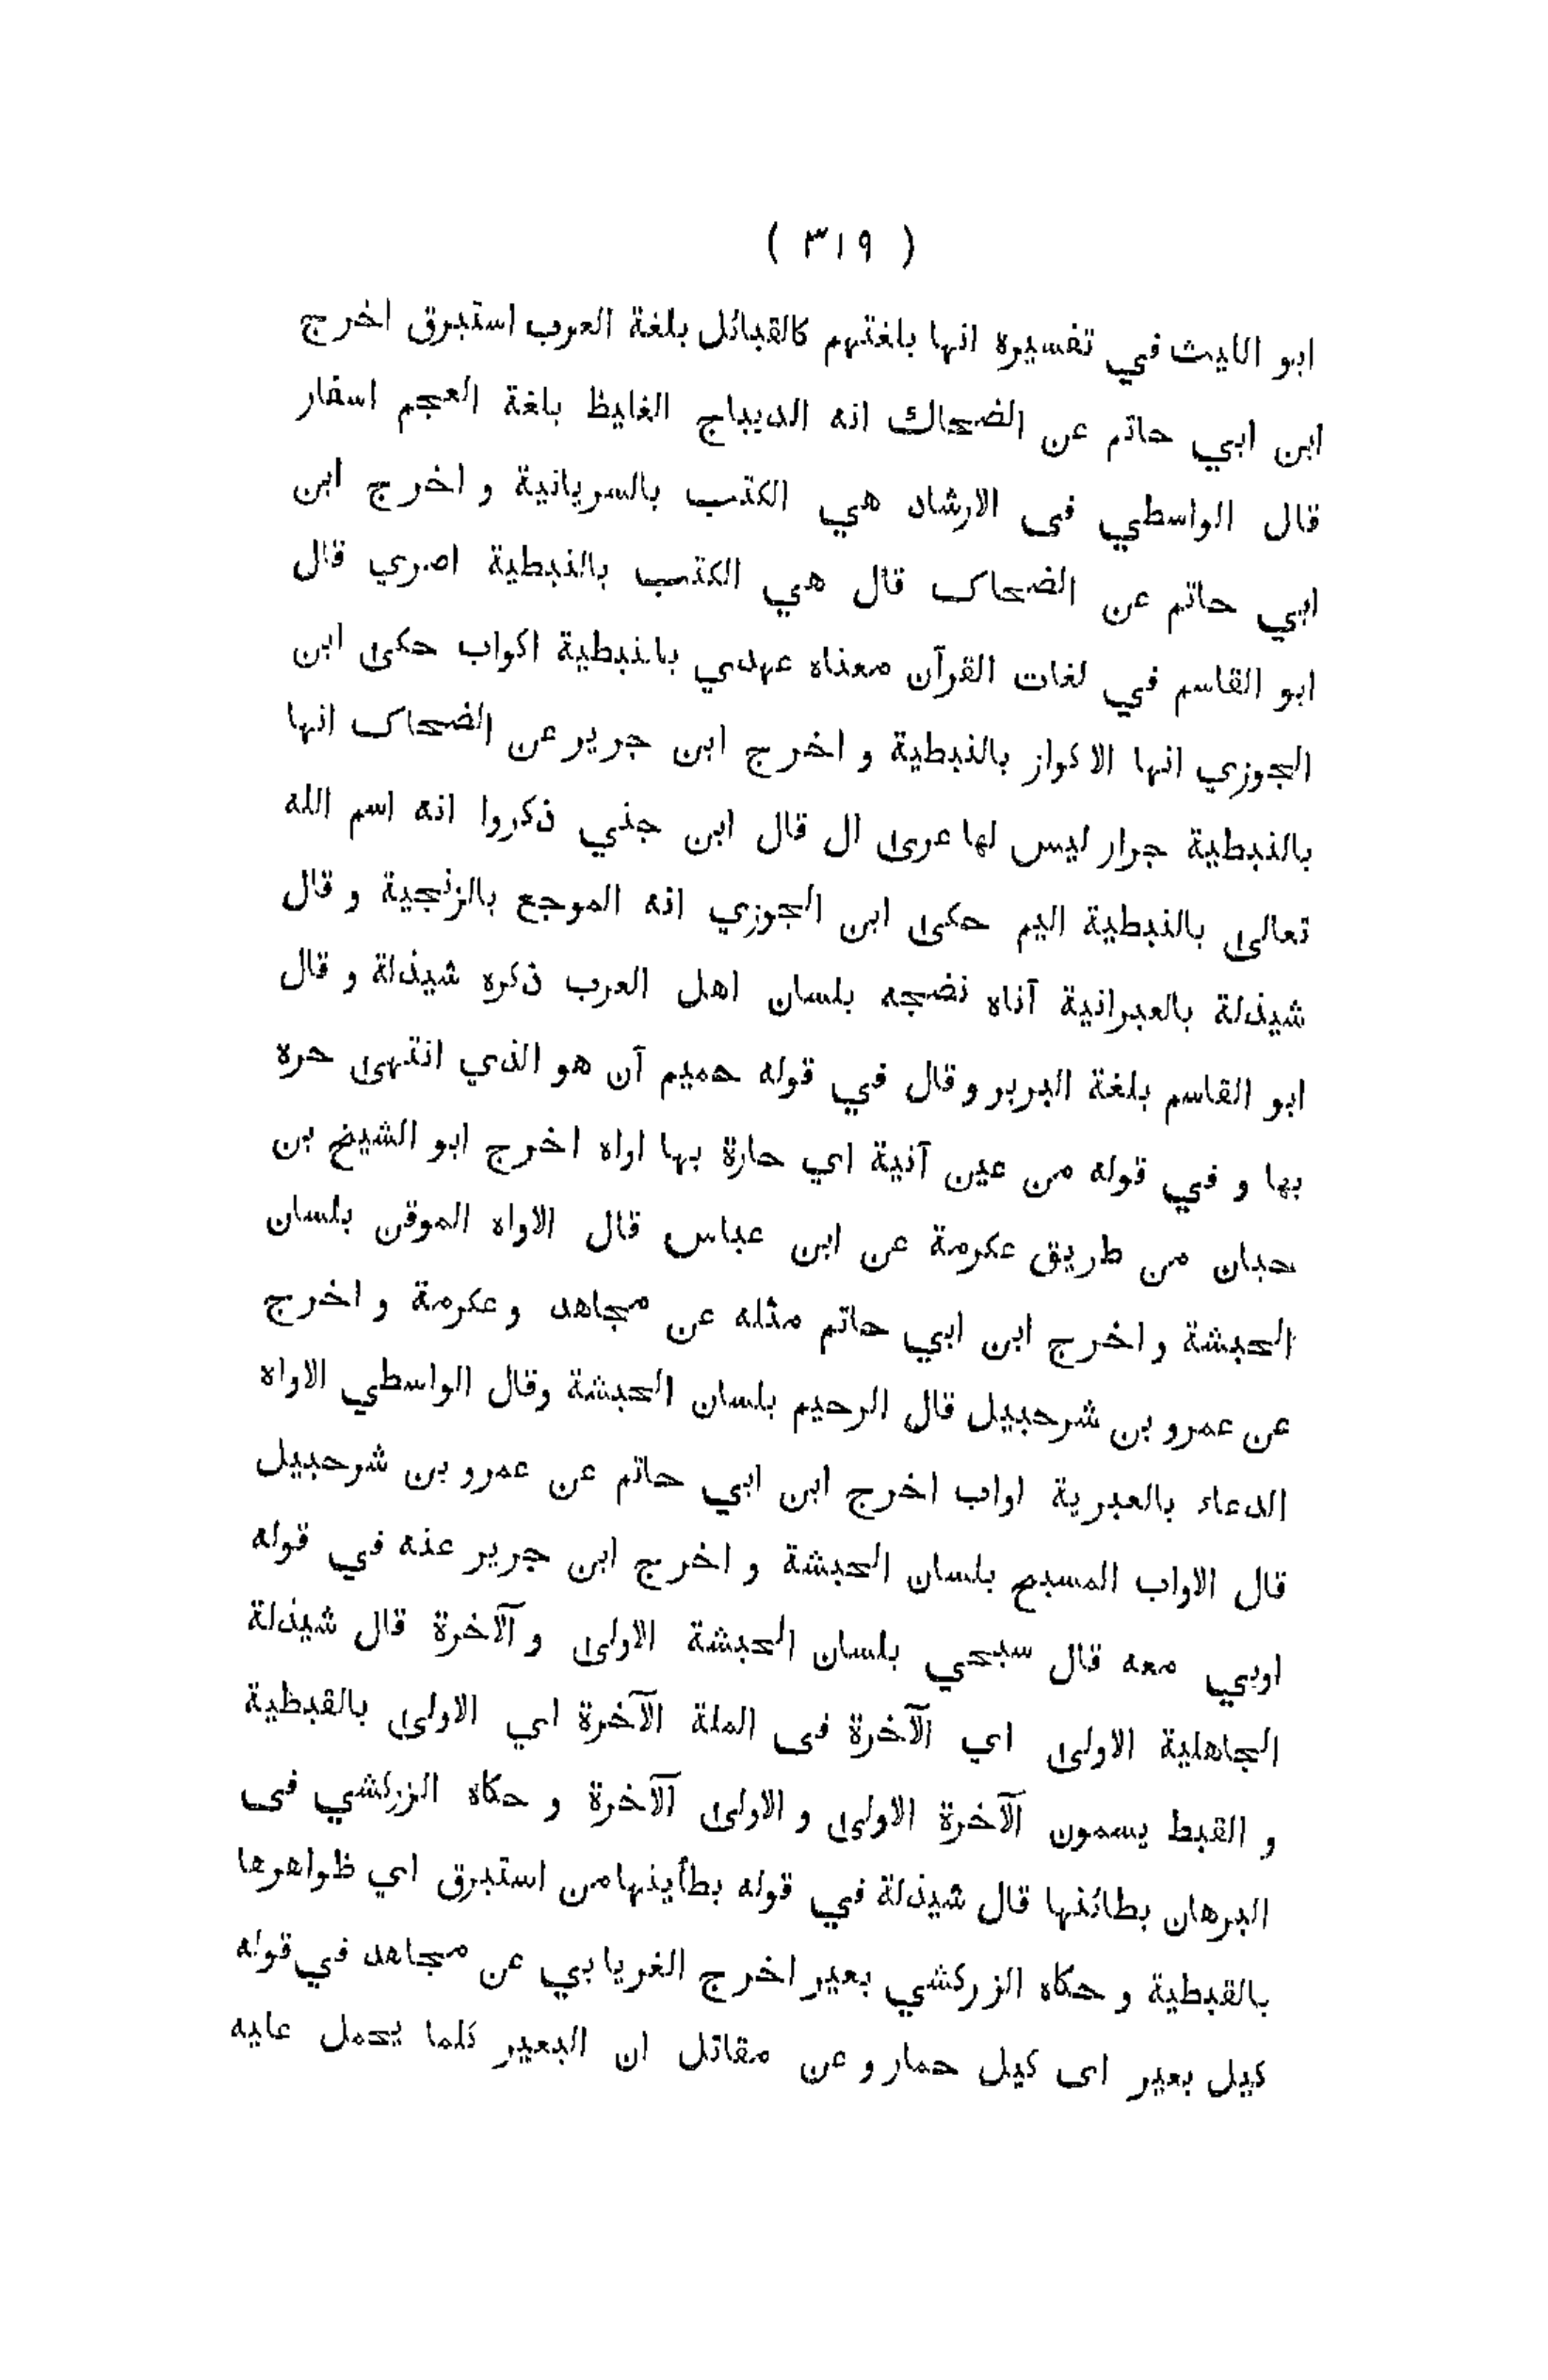 ( ٣١٩ )
ابو الليث في تفسيره انها بلغتهم كالقبائل بلغة العرب استبرق اخرج
ابن ابي حاتم عن الضحاك انه الديباج الغليظ بلغة العجم اسفار
قال الواسطي فى الارشاد هي الكتب بالسريانية و اخرج ابن
ابي حاتم عن الضحاك قال هي الكتب بالنبطية اصري قال
ابو القاسم في لغات القرآن معناه عهدي بالنبطية اكواب حكى ابن
الجوزي انها الاكواز بالنبطية و اخرج ابن جرير عن الضحاك انها
بالنبطية جرار ليس لها عرى ال قال ابن جني ذكروا انه اسم الله
تعالى بالنبطية اليم حكى ابن الجوزي انه الموجع بالزنجية و قال
شيذلة بالعبرانية آناه نضجه بلسان اهل العرب ذكره شيذلة و قال
ابو القاسم بلغة البربر و قال في قوله حميم آن هو الذي انتهى حره
بها و في قوله من عين آنية اي حارة بها اواه اخرج ابو الشيخ بن
حبان من طريق عكرمة عن ابن عباس قال الاواه الموقن بلسان
الحبشة و اخرج ابن ابي حاتم مثله عن مجاهد و عكرمة و اخرج
عن عمرو بن شرحبيل قال الرحيم بلسان الحبشة وقال الواسطي الاواه
الدعاء بالعبرية اواب اخرج ابن ابي حاتم عن عمرو بن شرحبيل
قال الاواب المسبح بلسان الحبشة و اخرج ابن جرير عنه في قوله
اوبي معه قال سبحي بلسان الحبشة الاولى و الآخرة قال شيذلة
الجاهلية الاولى اي الآخرة فى الملة الآخرة اي الاولى بالقبطية
و القبط يسمون الآخرة الاولى و الاولى الآخرة و حكاه الزركشي فى
البرهان بطائنها قال شيذلة في قوله بطأينها من استبرق اي ظواهرها
بالقبطية و حكاه الزركشي بعير اخرج الفريابي عن مجاهد في قوله
كيل بعير اى كيل حمار و عن مقاتل ان البعير كلما يحمل عليه